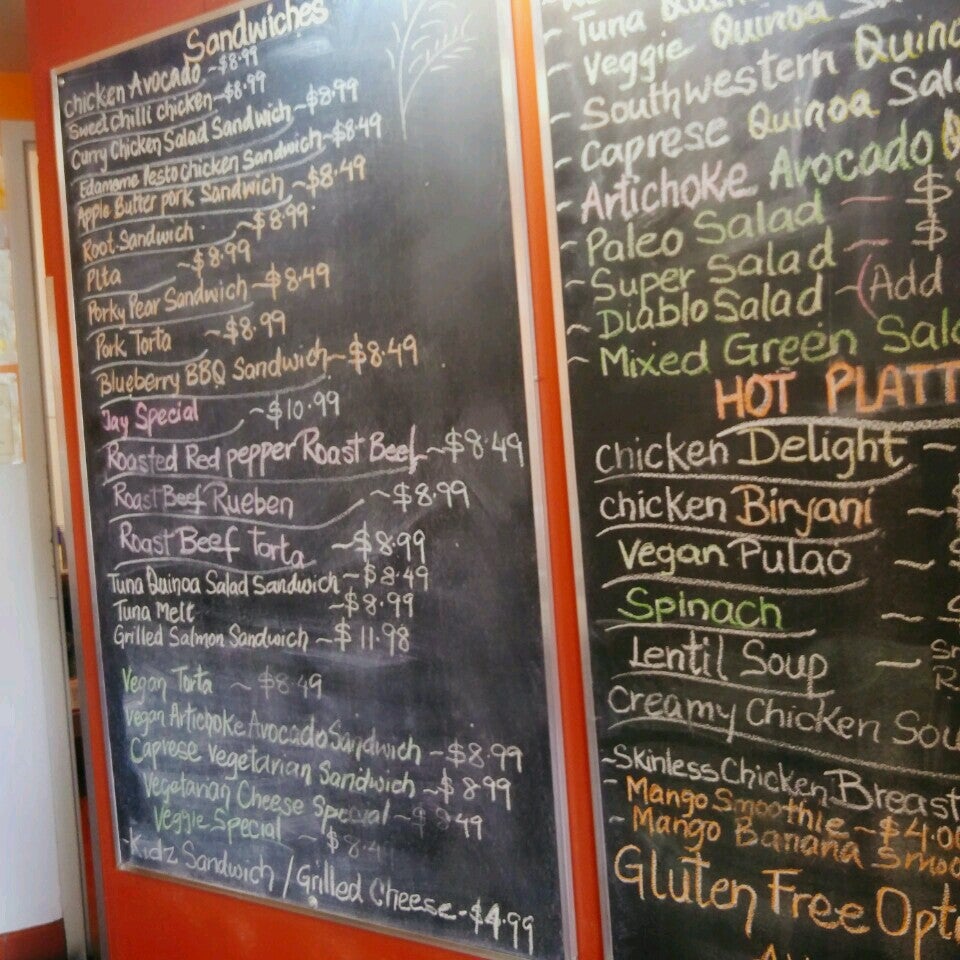 Sandwiches
Chicken Avocado ~$8.99
Sweet chilli chicken ~$8.99
Curry Chicken Salad Sandwich ~$8.99
Edamame Pesto chicken Sandwich ~$8.49
Apple Butter pork Sandwich ~$8.49
Root Sandwich ~$8.99
Pita ~$8.99
Porky Pear Sandwich ~$8.49
Pork Torta ~$8.99
Blueberry BBQ Sandwich ~$8.49
Jay Special ~$10.99
Roasted Red pepper Roast Beef ~$8.49
Roast Beef Rueben ~$8.99
Roast Beef Torta ~$8.99
Tuna Quinoa Salad Sandwich ~$8.49
Tuna Melt ~$8.99
Grilled Salmon Sandwich ~$11.98
Vegan Torta ~$8.49
Vegan Artichoke Avocado Sandwich ~$8.99
Caprese Vegetarian Sandwich ~$8.99
Vegetarian Cheese Special ~$8.49
Veggie Special ~$8.4
~Kidz Sandwich / Grilled Cheese ~$4.99
- Tuna
- Veggie Quinoa
- Southwestern Quino
- Caprese Quinoa Sala
- Artichoke Avocado
- Paleo Salad — $
- Super Salad — $
~ Diablo Salad ~ (Add
~ Mixed Green Sala
HOT PLATT
Chicken Delight ~
Chicken Biryani ~
Vegan Pulao ~
Spinach ~
Lentil Soup ~
Creamy Chicken Sou
~Skinless Chicken Breast
- Mango Smoothie ~$4.00
- Mango Banana Smoo
Gluten Free Opt